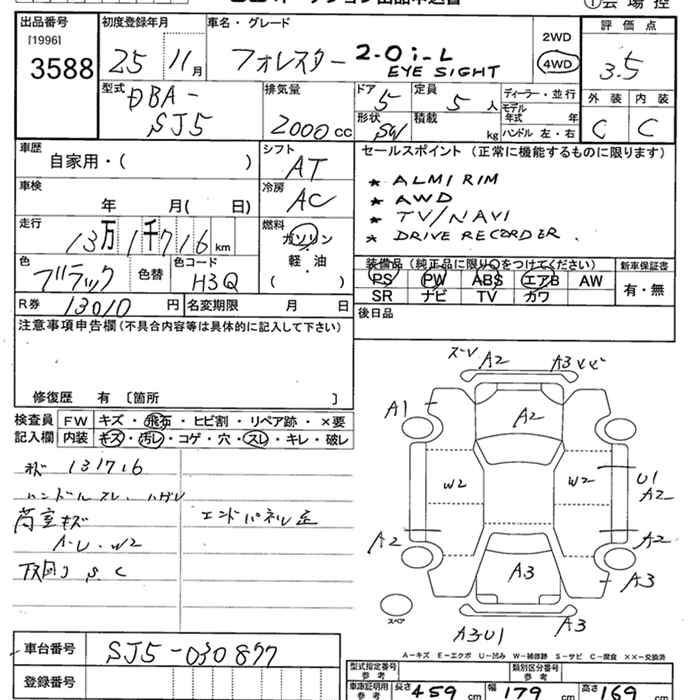 ①会場控
出品番号 初度登録年月 車名・グレード 2WD 評価点
[1996] 3588 25 11月 フォレスター 2.0i-L EYE SIGHT 4WD 3.5
型式 DBA-SJ5 排気量 2000cc ドア 5 定員 5人 ディーラー・並行 外装 内装
形状 SW 積載 kg モデル年式 年 C C
ハンドル 左・右
車歴 自家用・( ) シフト AT セールスポイント(正常に機能するものに限ります)
車検 年 月( 日) 冷房 AC
* ALMI RIM
* AWD
* TV/NAVI
* DRIVE RECORDER.
走行 13万1千716km 燃料 ガソリン 軽・油 ( )
色 ブラック 色替 色コード H3Q
装備品(純正品に限り○をつけてください) 新車保証書
PS PW ABS エアB AW 有・無
SR ナビ TV カワ
R券 13010円 名変期限 月 日
後日品
注意事項申告欄(不具合内容等は具体的に記入して下さい)
修復歴 有 [箇所 ]
検査員 FW キズ・飛石・ヒビ割・リペア跡・×要
記入欄 内装 キズ・汚レ・コゲ・穴・スレ・キレ・破レ
131716
ハンドルスレ
荷室キズ
エンドパネル
A・U・W2
下回り S C
A2 A3
A1 A2
W2 W2 U1 A2
A2 A2
A3 A3
A3U1 A3
スペア
A-キズ E-エクボ U-凹み W-補修跡 S-サビ C-腐食 ××-交換済
車台番号 SJ5-030877
登録番号
型式指定番号 参考 類別区分番号 参考
車庫証明用 参考 長さ 459cm 幅 179cm 高さ 169cm